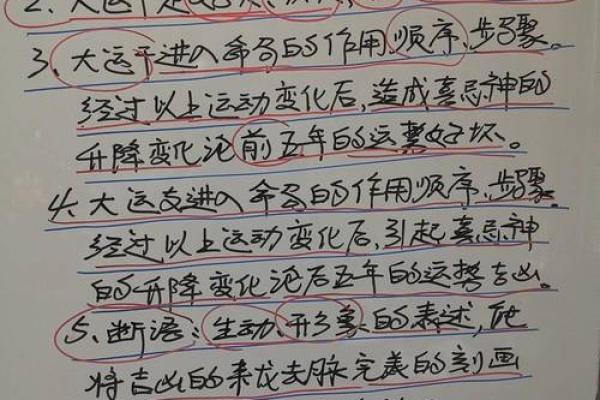 2、大运干
3、大运干进入命局的作用、顺序、步骤。
经过以上运动变化后,造成喜忌神的
升降变化论前五年的运势好坏。
4、大运支进入命局的作用顺序、步骤。
经过以上运动变化后,引起喜忌神
的升降变化论后五年的运势吉凶。
5、断语:生动、形象的表述,能
将吉凶的来龙去脉完美的刻画